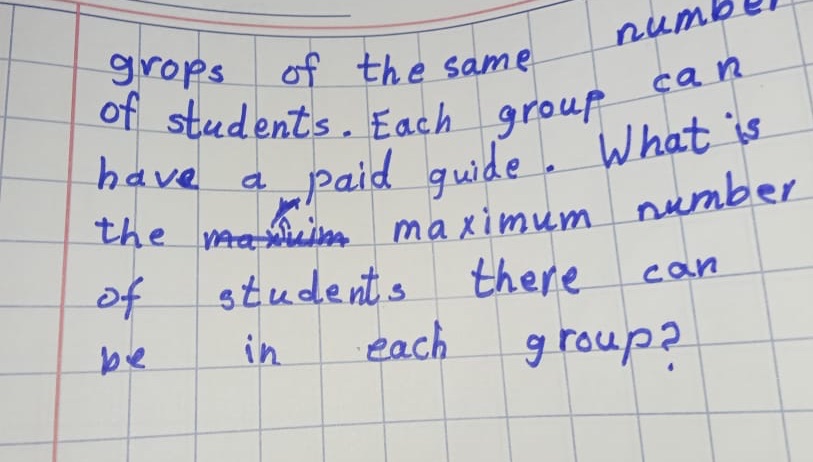 grops of the same number
of students. Each group can
have a paid guide. What is
the maximum number
of students there can
be in each group?